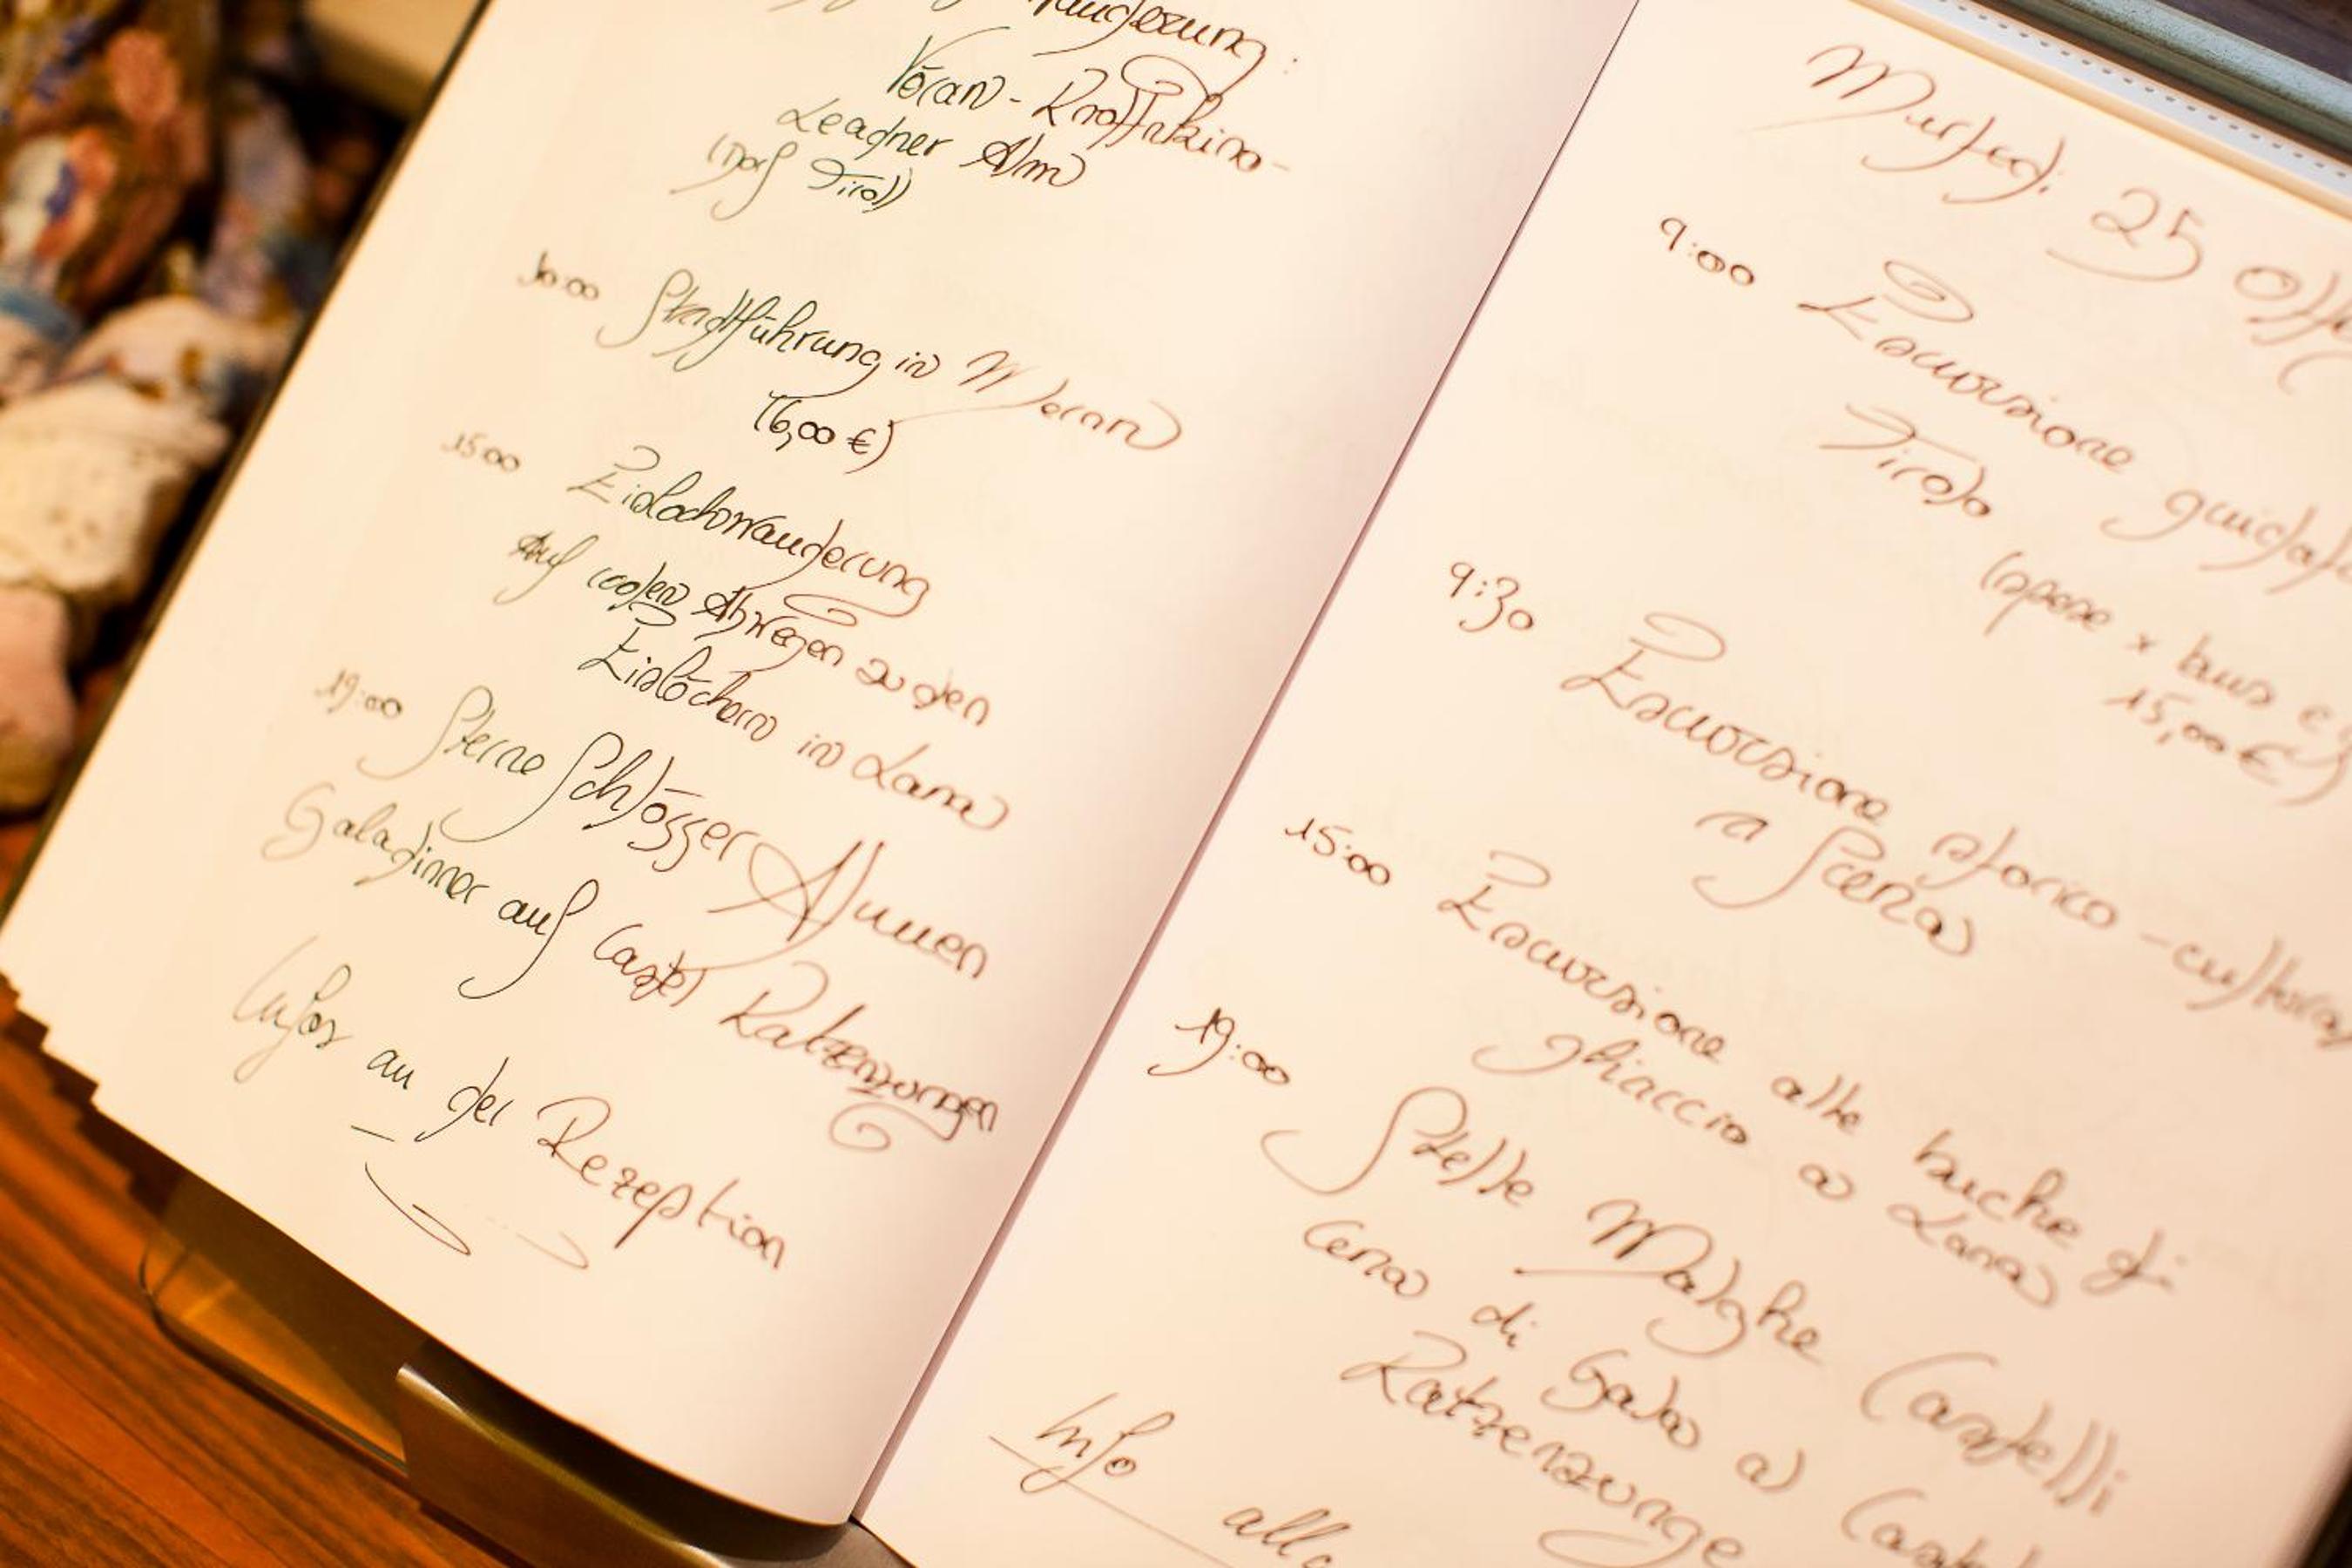 Vöran - Knottnkino-
Leadner Alm
(nach Tirol)
10:00 Stadtführung in Meran
(6,00 €)
15:00 Eislochwanderung
Auf coolen Abwegen zu den
Eislöchern in Lana
19:00 Sterne Schlösser Almen
Galadinner auf Castel Katzenzungen
Infos an der Rezeption
Martedì 25
9:00 Escursione
Tirolo
(spese x bus e
15,00 €)
9:30 Escursione storico-cultura
a Scena
15:00 Escursione alle buche di
ghiaccio a Lana
19:00 Stelle Malghe Castelli
Cena di Gala a
Katzenzunge
Info